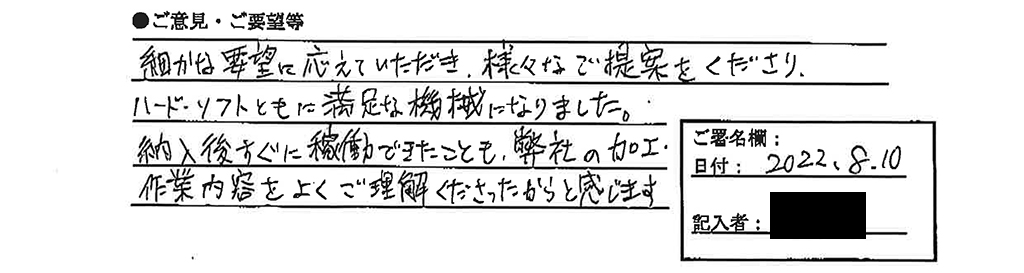 ●ご意見・ご要望等
細かな要望に応えていただき、様々なご提案をくださり、
ハード・ソフトともに満足な機械になりました。
納入後すぐに稼働できたことも、弊社の加工・
作業内容をよくご理解くださったからと感じます
ご署名欄：
日付： 2022、8.10
記入者：